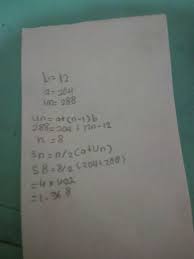 b = 12
a = 204
un = 288
un = a+(n-1)b
288 = 204 + 12n-12
n = 8
Sn = n/2 (a+Un)
S8 = 8/2 (204+288)
= 4 x 492
= 1.968